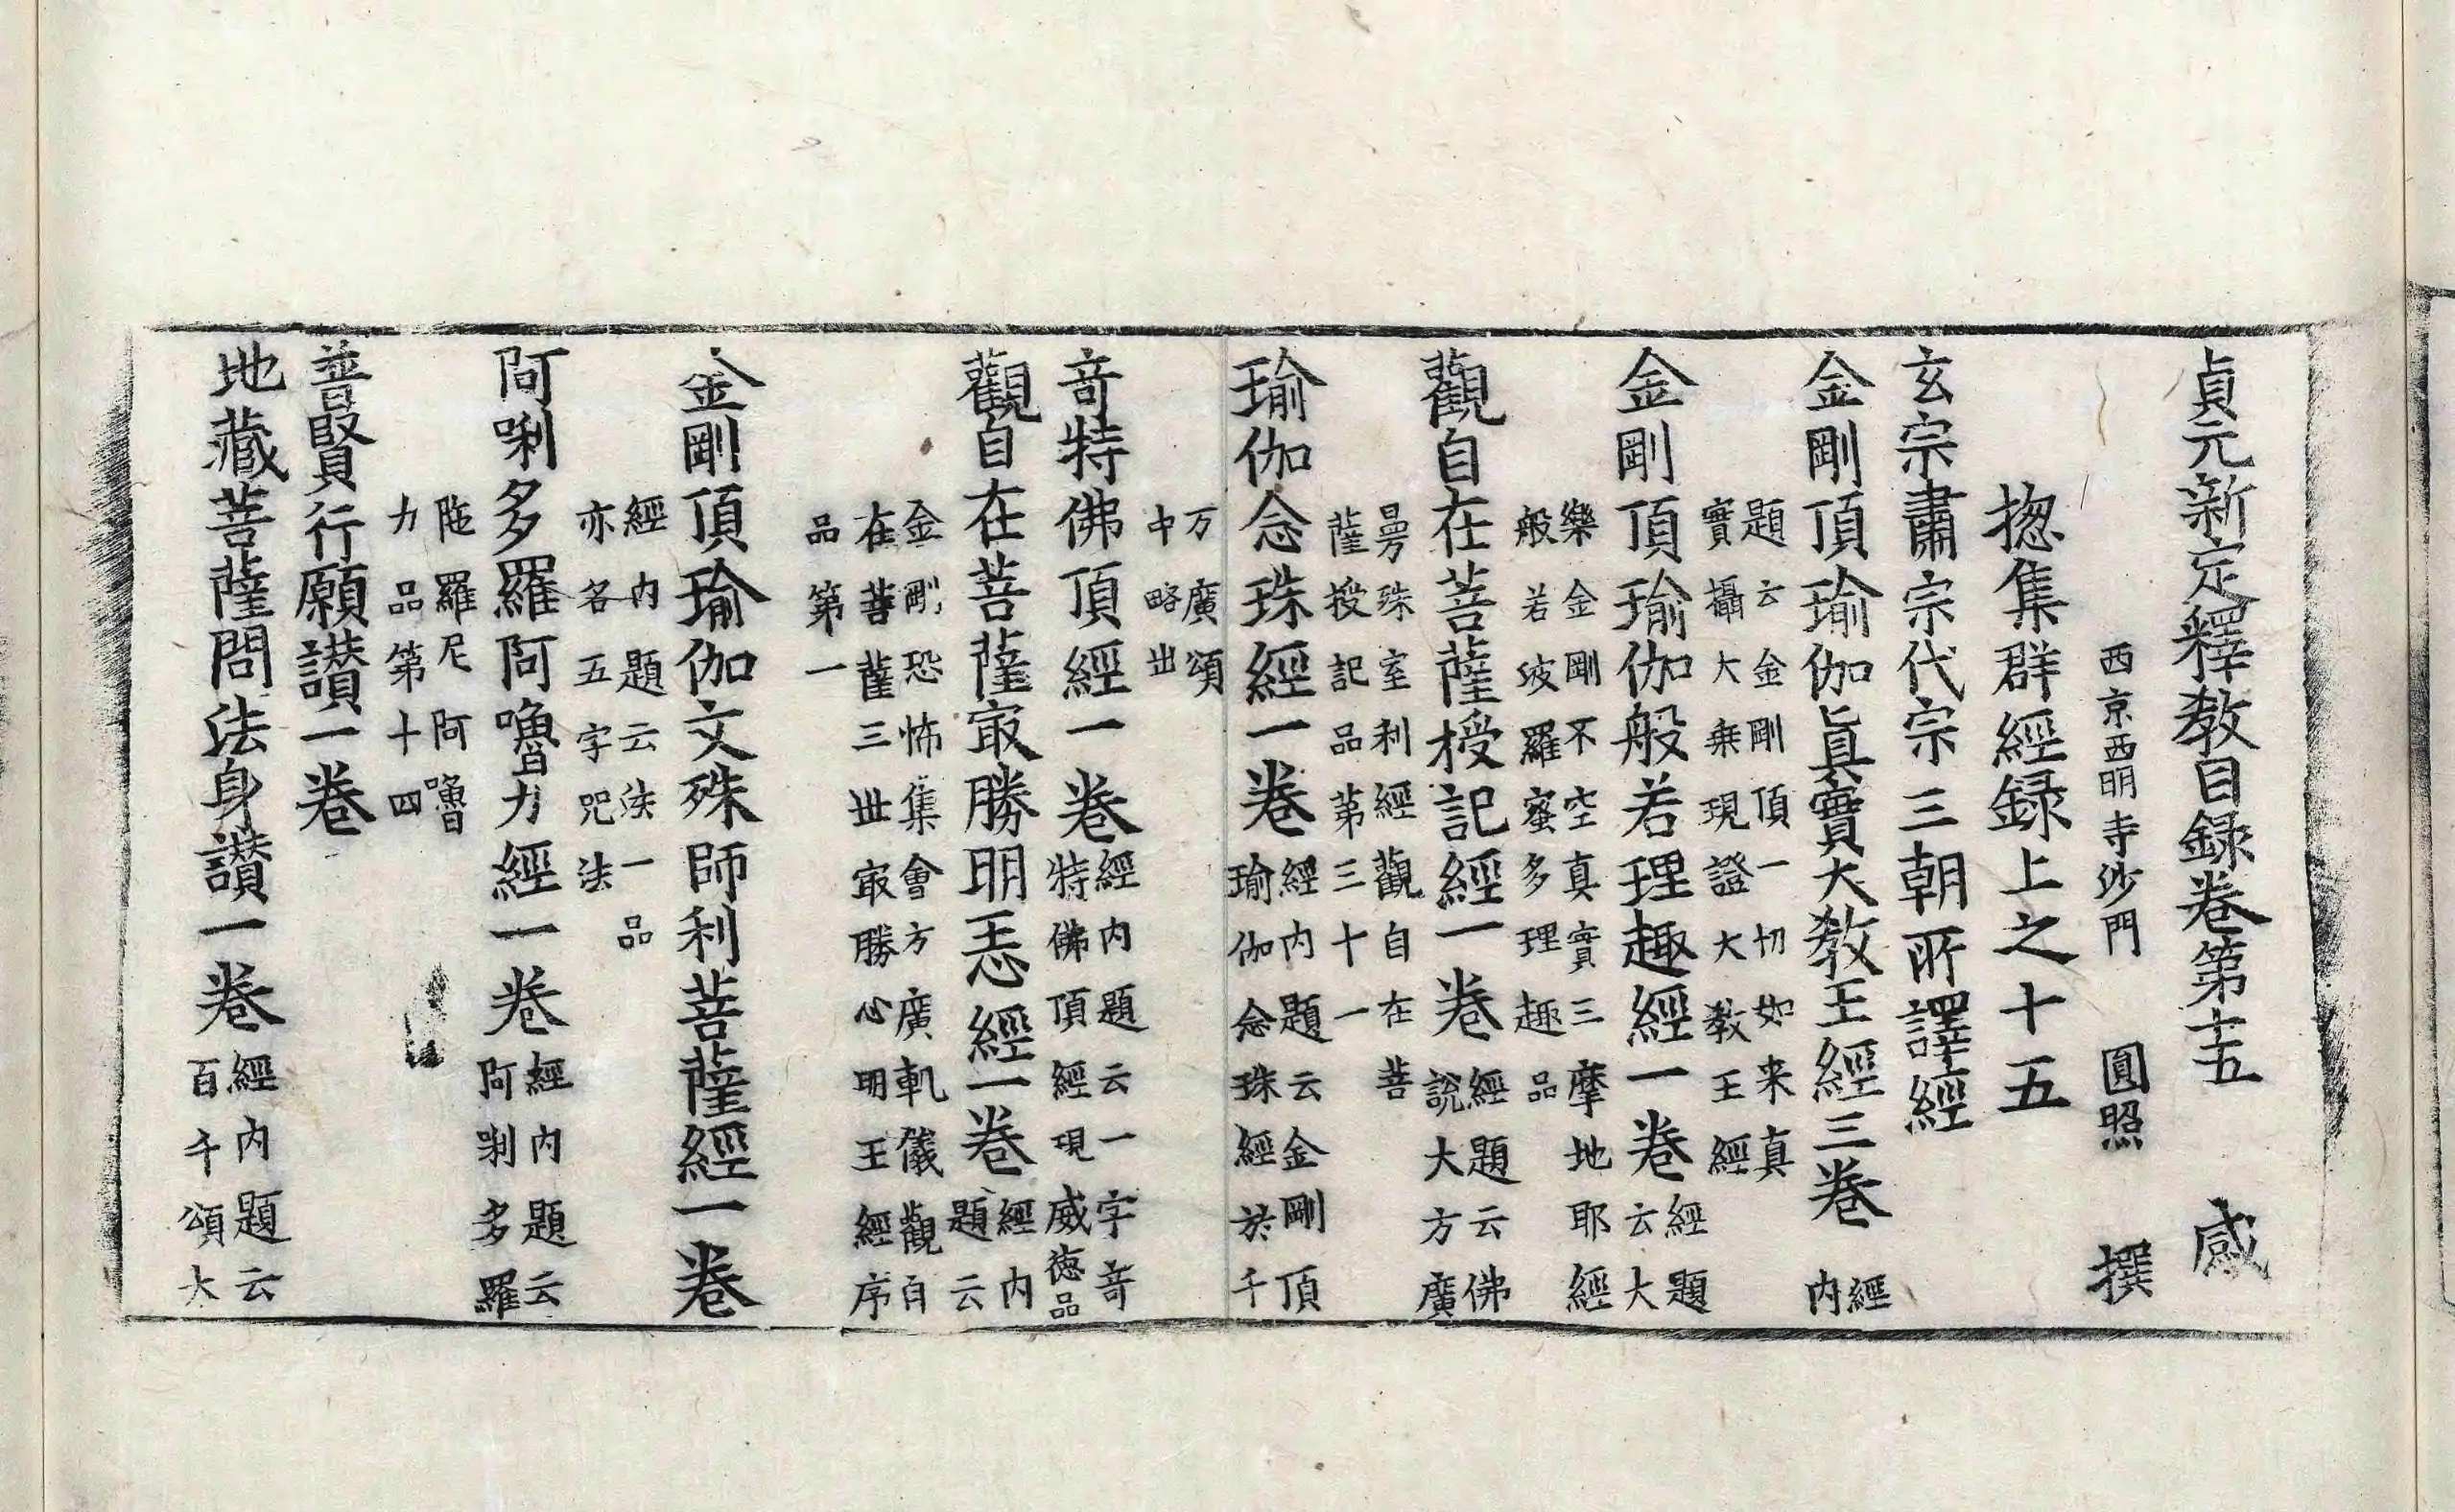 貞元新定釋教目録卷第十五 咸
西京西明寺沙門 圓照 撰
揔集群經録上之十五
玄宗肅宗代宗三朝所譯經
金剛頂瑜伽眞實大教王經三卷 經内
題云金剛頂一切如来真
實攝大乗現證大教王經
金剛頂瑜伽般若理趣經一卷 經題云大
樂金剛不空真實三摩地耶經
般若波羅蜜多理趣品
觀自在菩薩授記經一卷 經題云佛說大方廣
曼殊室利經觀自在菩
薩授記品第三十一
瑜伽念珠經一卷 經内題云金剛頂
瑜伽念珠經於十
万廣頌
中略出
竒特佛頂經一卷 經内題云一字竒
特佛頂經現威徳品
觀自在菩薩㝡勝明王經一卷 經内題云
金剛恐怖集會方廣軌儀觀自
在菩薩三世㝡勝心明王經序
品第一
金剛頂瑜伽文殊師利菩薩經一卷
經内題云法一品
亦名五字咒法
阿唎多羅阿嚕力經一卷 經内題云
阿唎多羅
陁羅尼阿嚕
力品第十四
普賢行願讃一卷
地藏菩薩問法身讃一卷 經内題云
百千頌大